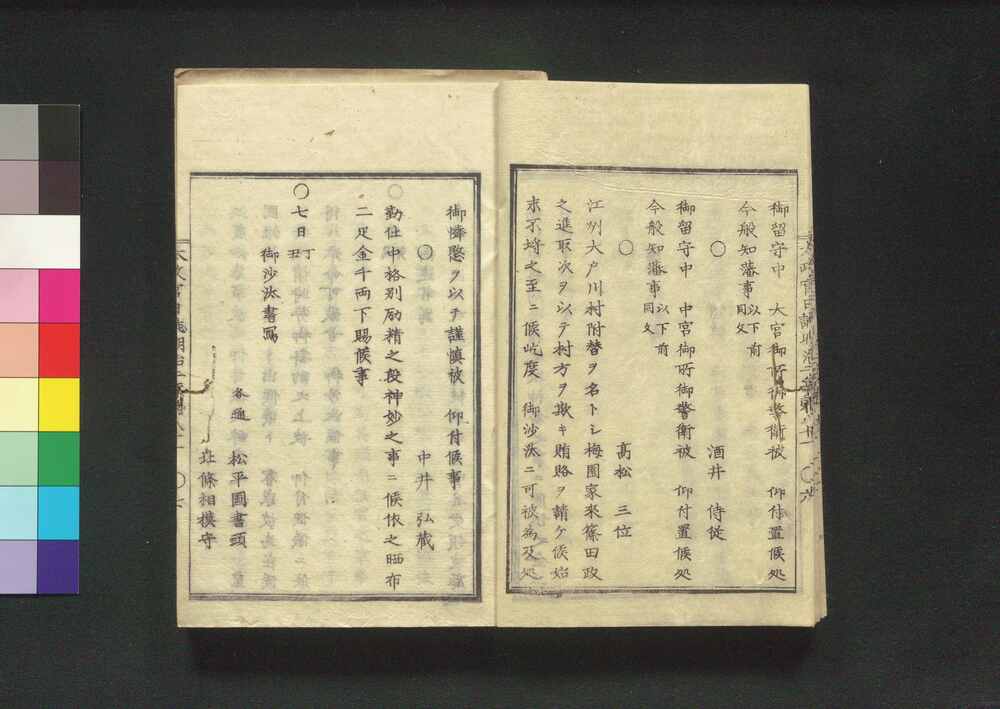 御留守中　大宮御所御警衛被　仰付置候処
今般知藩事以下前同文
○　　　　　　　酒井　侍従
御留守中　中宮御所御警衛被　仰付置候処
今般知藩事以下前同文
○　　　　　　　高松　三位
江州大戸川村附替ヲ名トシ梅園家来篠田政
之進取次ヲ以テ村方ヲ欺キ賄賂ヲ請ケ候始
末不埒之至ニ候屹度　御沙汰ニ可被為及処
御憐愍ヲ以テ謹慎被　仰付候事
○　　　　　　　中井　弘蔵
勤仕中格別励精之段神妙之事ニ候依之晒布
二疋金千両下賜候事
○七日丁丑
御沙汰書写
各通　松平図書頭
北條相模守